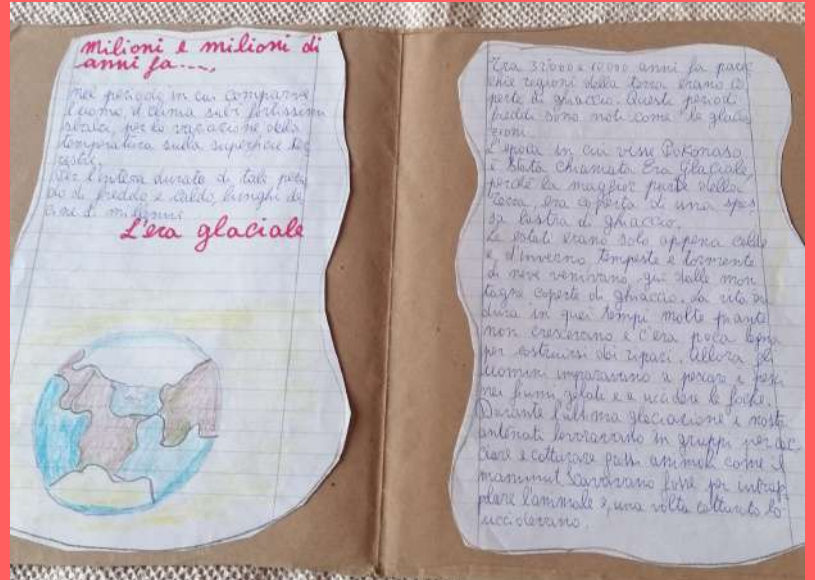 Milioni e milioni di
anni fa....,
Nel periodo in cui comparve
l'uomo, il clima subì fortissimi
sbalzi, per la variazione della
temperatura sulla superficie ter
restre.
Per l'intera durata di tali perio
di di freddo e caldo, lunghi de
cine di millenni
L'era glaciale
Tra 32000 e 10000 anni fa parec
chie regioni della terra erano co
perte di ghiaccio. Questi periodi
freddi sono noti come le glacia
zioni.
L'epoca in cui visse Pokonaso
è stata chiamata Era Glaciale,
perché la maggior parte della
Terra era coperta di una spes
sa lastra di ghiaccio.
Le estati erano solo appena calde
e, d'inverno, tempeste e tormente
di neve venivano giù dalle mon
tagne coperte di ghiaccio. La vita era
dura in quei tempi molte piante
non crescevano e c'era poca legna
per costruirsi dei ripari. Allora gli
uomini impararono a pescare i pesci
nei fiumi gelati e a uccidere le foche.
Durante l'ultima glaciazione i nostri
antenati lavoravano in gruppi per cac
ciare e catturare grossi animali come il
mammut. Scavavano fosse per intrap
polare l'animale e, una volta catturato lo
uccidevano.